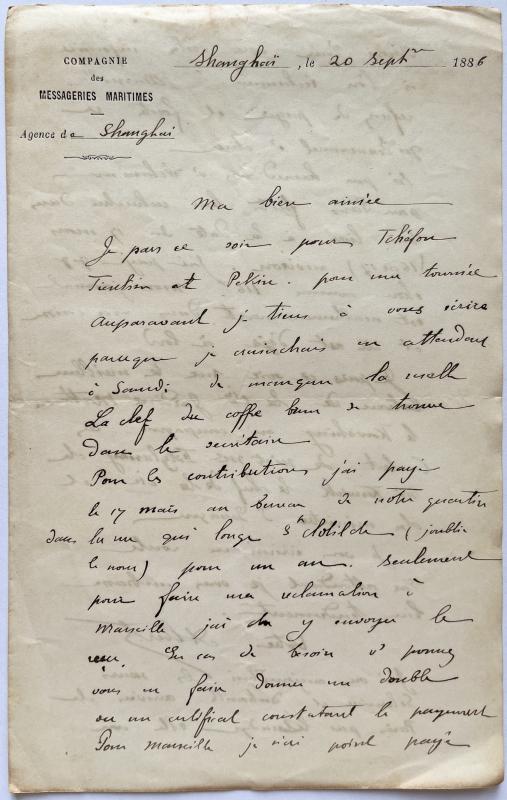 COMPAGNIE
des
MESSAGERIES MARITIMES
Agence de Shanghaï
Shanghaï, le 20 Sept 1886
Ma bien aimée
Je pars ce soir pour Tchéfou
Tientsin et Pékin. pour ma tournée
Auparavant je tiens à vous écrire
parceque je craindrais en attendant
à Samedi de manquer la
La clef du coffre bien se trouve
dans le secrétaire
Pour les contributions j'ai payé
le 17 mars au bureau de notre quartier
dans la rue qui longe Ste Clotilde (j'oublie
le nom) pour un an. Seulement
pour faire ma réclamation à
Marseille j'ai dû y envoyer le
reçu. En cas de besoin v. pouvez
vous en faire donner un double
ou un certificat constatant le payement
Pour Marseille je n'ai point payé